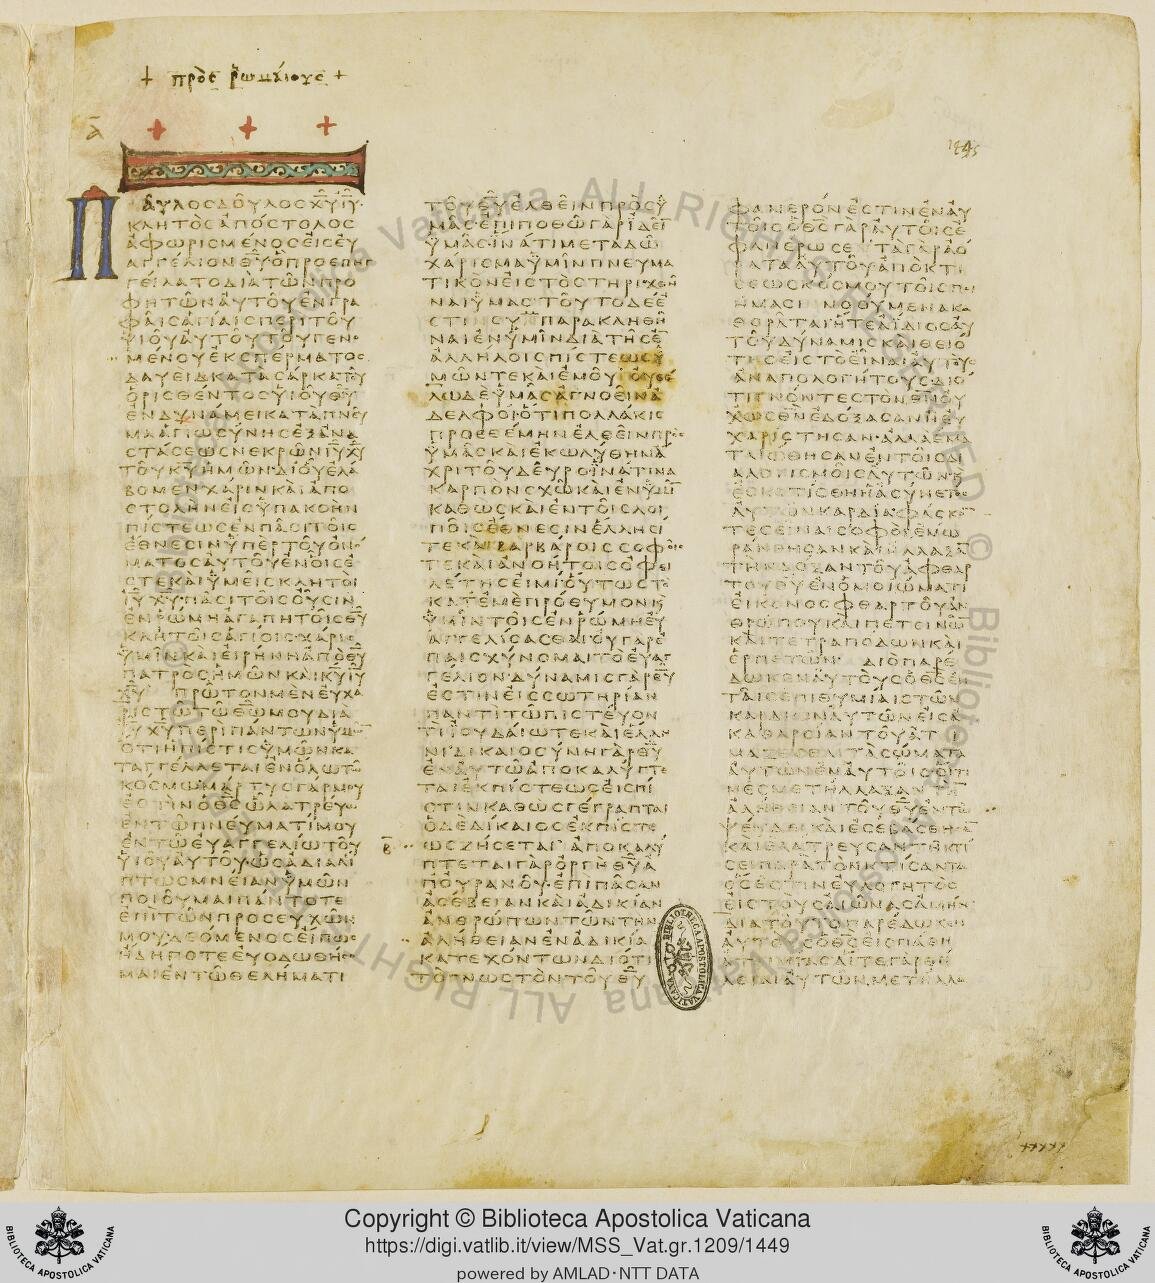 + πρὸς ῥωμαίους +
ᾱ
ΠΑΥΛΟΣΔΟΥΛΟΣΧΥΙΥ
ΚΛΗΤΟΣΑΠΟΣΤΟΛΟΣ
ΑΦΩΡΙΣΜΕΝΟΣΕΙΣΕΥ
ΑΓΓΕΛΙΟΝΘΥΟΠΡΟΕΠΗΓ
ΓΕΙΛΑΤΟΔΙΑΤΩΝΠΡΟ
ΦΗΤΩΝΑΥΤΟΥΕΝΓΡΑ
ΦΑΙΣΑΓΙΑΙΣΠΕΡΙΤΟΥ
ΥΙΟΥΑΥΤΟΥΤΟΥΓΕΝΟ
ΜΕΝΟΥΕΚΣΠΕΡΜΑΤΟΣ
ΔΑΥΕΙΔΚΑΤΑΣΑΡΚΑΤΟΥ
ΟΡΙΣΘΕΝΤΟΣΥΙΟΥΘΥ
ΕΝΔΥΝΑΜΕΙΚΑΤΑΠΝΕΥ
ΜΑΑΓΙΩΣΥΝΗΣΕΞΑΝΑ
ΣΤΑΣΕΩΣΝΕΚΡΩΝΙΥΧΥ
ΤΟΥΚΥΗΜΩΝΔΙΟΥΕΛΑ
ΒΟΜΕΝΧΑΡΙΝΚΑΙΑΠΟ
ΣΤΟΛΗΝΕΙΣΥΠΑΚΟΗΝ
ΠΙΣΤΕΩΣΕΝΠΑΣΙΤΟΙΣ
ΕΘΝΕΣΙΝΥΠΕΡΤΟΥΟΝΟ
ΜΑΤΟΣΑΥΤΟΥΕΝΟΙΣΕ
ΣΤΕΚΑΙΥΜΕΙΣΚΛΗΤΟΙ
ΙΥΧΥΠΑΣΙΤΟΙΣΟΥΣΙΝ
ΕΝΡΩΜΗΑΓΑΠΗΤΟΙΣΘΥ
ΚΛΗΤΟΙΣΑΓΙΟΙΣΧΑΡΙΣ
ΥΜΙΝΚΑΙΕΙΡΗΝΗΑΠΟΘΥ
ΠΑΤΡΟΣΗΜΩΝΚΑΙΚΥΙΥ
ΧΥ ΠΡΩΤΟΝΜΕΝΕΥΧΑ
ΡΙΣΤΩΤΩΘΩΜΟΥΔΙΑ
ΙΥΧΥΠΕΡΙΠΑΝΤΩΝΥΜΩ
ΟΤΙΗΠΙΣΤΙΣΥΜΩΝΚΑ
ΤΑΓΓΕΛΛΕΤΑΙΕΝΟΛΩΤΩ
ΚΟΣΜΩΜΑΡΤΥΣΓΑΡΜΟΥ
ΕΣΤΙΝΟΘΣΩΛΑΤΡΕΥΩ
ΕΝΤΩΠΝΕΥΜΑΤΙΜΟΥ
ΕΝΤΩΕΥΑΓΓΕΛΙΩΤΟΥ
ΥΙΟΥΑΥΤΟΥΩΣΑΔΙΑΛΙ
ΠΤΩΣΜΝΕΙΑΝΥΜΩΝ
ΠΟΙΟΥΜΑΙΠΑΝΤΟΤΕ
ΕΠΙΤΩΝΠΡΟΣΕΥΧΩΝ
ΜΟΥΔΕΟΜΕΝΟΣΕΙΠΩΣ
ΗΔΗΠΟΤΕΕΥΟΔΩΘΗΣΟ
ΜΑΙΕΝΤΩΘΕΛΗΜΑΤΙ
ΤΟΥΘΥΕΛΘΕΙΝΠΡΟΣΥ
ΜΑΣΕΠΙΠΟΘΩΓΑΡΙΔΕΙ
ΥΜΑΣΙΝΑΤΙΜΕΤΑΔΩ
ΧΑΡΙΣΜΑΥΜΙΝΠΝΕΥΜΑ
ΤΙΚΟΝΕΙΣΤΟΣΤΗΡΙΧΘΗ
ΝΑΙΥΜΑΣΤΟΥΤΟΔΕΕ
ΣΤΙΝΣΥΜΠΑΡΑΚΛΗΘΗ
ΝΑΙΕΝΥΜΙΝΔΙΑΤΗΣΕ
ΑΛΛΗΛΟΙΣΠΙΣΤΕΩΣΥ
ΜΩΝΤΕΚΑΙΕΜΟΥΟΥΘΕ
ΛΩΔΕΥΜΑΣΑΓΝΟΕΙΝΑ
ΔΕΛΦΟΙΟΤΙΠΟΛΛΑΚΙΣ
ΠΡΟΕΘΕΜΗΝΕΛΘΕΙΝΠΡΟΣ
ΥΜΑΣΚΑΙΕΚΩΛΥΘΗΝΑ
ΧΡΙΤΟΥΔΕΥΡΟΙΝΑΤΙΝΑ
ΚΑΡΠΟΝΣΧΩΚΑΙΕΝΥΜΙ
ΚΑΘΩΣΚΑΙΕΝΤΟΙΣΛΟΙ
ΠΟΙΣΕΘΝΕΣΙΝΕΛΛΗΣΙ
ΤΕΚΑΙΒΑΡΒΑΡΟΙΣΣΟΦΟΙΣ
ΤΕΚΑΙΑΝΟΗΤΟΙΣΟΦΕΙ
ΛΕΤΗΣΕΙΜΙΟΥΤΩΣΤΟ
ΚΑΤΕΜΕΠΡΟΘΥΜΟΝΚ
ΥΜΙΝΤΟΙΣΕΝΡΩΜΗΕΥ
ΑΓΓΕΛΙΣΑΣΘΑΙΟΥΓΑΡΕ
ΠΑΙΣΧΥΝΟΜΑΙΤΟΕΥΑΓ
ΓΕΛΙΟΝΔΥΝΑΜΙΣΓΑΡΘΥ
ΕΣΤΙΝΕΙΣΣΩΤΗΡΙΑΝ
ΠΑΝΤΙΤΩΠΙΣΤΕΥΟΝ
ΤΙΙΟΥΔΑΙΩΤΕΚΑΙΕΛΛΗ
ΝΙΔΙΚΑΙΟΣΥΝΗΓΑΡΘΥ
ΕΝΑΥΤΩΑΠΟΚΑΛΥΠΤΕ
ΤΑΙΕΚΠΙΣΤΕΩΣΕΙΣΠΙ
ΣΤΙΝΚΑΘΩΣΓΕΓΡΑΠΤΑΙ
ΟΔΕΔΙΚΑΙΟΣΕΚΠΙΣΤΕ
Β ΩΣΖΗΣΕΤΑΙ ΑΠΟΚΑΛΥ
ΠΤΕΤΑΙΓΑΡΟΡΓΗΘΥΑ
ΠΟΥΡΑΝΟΥΕΠΙΠΑΣΑΝ
ΑΣΕΒΕΙΑΝΚΑΙΑΔΙΚΙΑΝ
ΑΝΘΡΩΠΩΝΤΩΝΤΗΝ
ΑΛΗΘΕΙΑΝΕΝΑΔΙΚΙΑ
ΚΑΤΕΧΟΝΤΩΝΔΙΟΤΙ
ΤΟΓΝΩΣΤΟΝΤΟΥΘΥ
ΦΑΝΕΡΟΝΕΣΤΙΝΕΝΑΥ
ΤΟΙΣΟΘΣΓΑΡΑΥΤΟΙΣΕ
ΦΑΝΕΡΩΣΕΝΤΑΓΑΡΑΟ
ΡΑΤΑΑΥΤΟΥΑΠΟΚΤΙ
ΣΕΩΣΚΟΣΜΟΥΤΟΙΣΠΟΙ
ΗΜΑΣΙΝΟΟΥΜΕΝΑΚΑ
ΘΟΡΑΤΑΙΗΤΕΑΙΔΙΟΣΑΥ
ΤΟΥΔΥΝΑΜΙΣΚΑΙΘΕΙΟ
ΤΗΣΕΙΣΤΟΕΙΝΑΙΑΥΤΟΥΣ
ΑΝΑΠΟΛΟΓΗΤΟΥΣΔΙΟ
ΤΙΓΝΟΝΤΕΣΤΟΝΘΝΟΥ
ΧΩΣΘΝΕΔΟΞΑΣΑΝΗΕΥ
ΧΑΡΙΣΤΗΣΑΝΑΛΛΑΕΜΑ
ΤΑΙΩΘΗΣΑΝΕΝΤΟΙΣΔΙ
ΑΛΟΓΙΣΜΟΙΣΑΥΤΩΝΚ
ΕΣΚΟΤΙΣΘΗΗΑΣΥΝΕΤΟΣ
ΑΥΤΩΝΚΑΡΔΙΑΦΑΣΚΟ
ΤΕΣΕΙΝΑΙΣΟΦΟΙΕΜΩ
ΡΑΝΘΗΣΑΝΚΑΙΗΛΛΑΞΑ
ΤΗΝΔΟΞΑΝΤΟΥΑΦΘΑΡ
ΤΟΥΘΥΕΝΟΜΟΙΩΜΑΤΙ
ΕΙΚΟΝΟΣΦΘΑΡΤΟΥΑΝ
ΘΡΩΠΟΥΚΑΙΠΕΤΕΙΝΩ
ΚΑΙΤΕΤΡΑΠΟΔΩΝΚΑΙ
ΕΡΠΕΤΩΝ ΔΙΟΠΑΡΕ
ΔΩΚΕΝΑΥΤΟΥΣΟΘΣΕΝ
ΤΑΙΣΕΠΙΘΥΜΙΑΙΣΤΩΝ
ΚΑΡΔΙΩΝΑΥΤΩΝΕΙΣΑ
ΚΑΘΑΡΣΙΑΝΤΟΥΑΤΙ
ΜΑΖΕΣΘΑΙΤΑΣΩΜΑΤΑ
ΑΥΤΩΝΕΝΑΥΤΟΙΣΟΙΤΙ
ΝΕΣΜΕΤΗΛΛΑΞΑΝΤΗ
ΑΛΗΘΕΙΑΝΤΟΥΘΥΕΝΤΩ
ΨΕΥΔΕΙΚΑΙΕΣΕΒΑΣΘΗΣΑ
ΚΑΙΕΛΑΤΡΕΥΣΑΝΤΗΚΤΙ
ΣΕΙΠΑΡΑΤΟΝΚΤΙΣΑΝΤΑ
ΟΣΕΣΤΙΝΕΥΛΟΓΗΤΟΣ
ΕΙΣΤΟΥΣΑΙΩΝΑΣΑΜΗΝ
ΔΙΑΤΟΥΤΟΠΑΡΕΔΩΚΕΝ
ΑΥΤΟΥΣΟΘΣΕΙΣΠΑΘΗ
ΑΤΙΜΙΑΣΑΙΤΕΓΑΡΘΗ
ΛΕΙΑΙΑΥΤΩΝΜΕΤΗΛΛΑ
BIBLIOTHECA APOSTOLICA VATICANA
Copyright © Biblioteca Apostolica Vaticana
https://digi.vatlib.it/view/MSS_Vat.gr.1209/1449
powered by AMLAD·NTT DATA
BIBLIOTECA APOSTOLICA VATICANA
BIBLIOTECA APOSTOLICA VATICANA